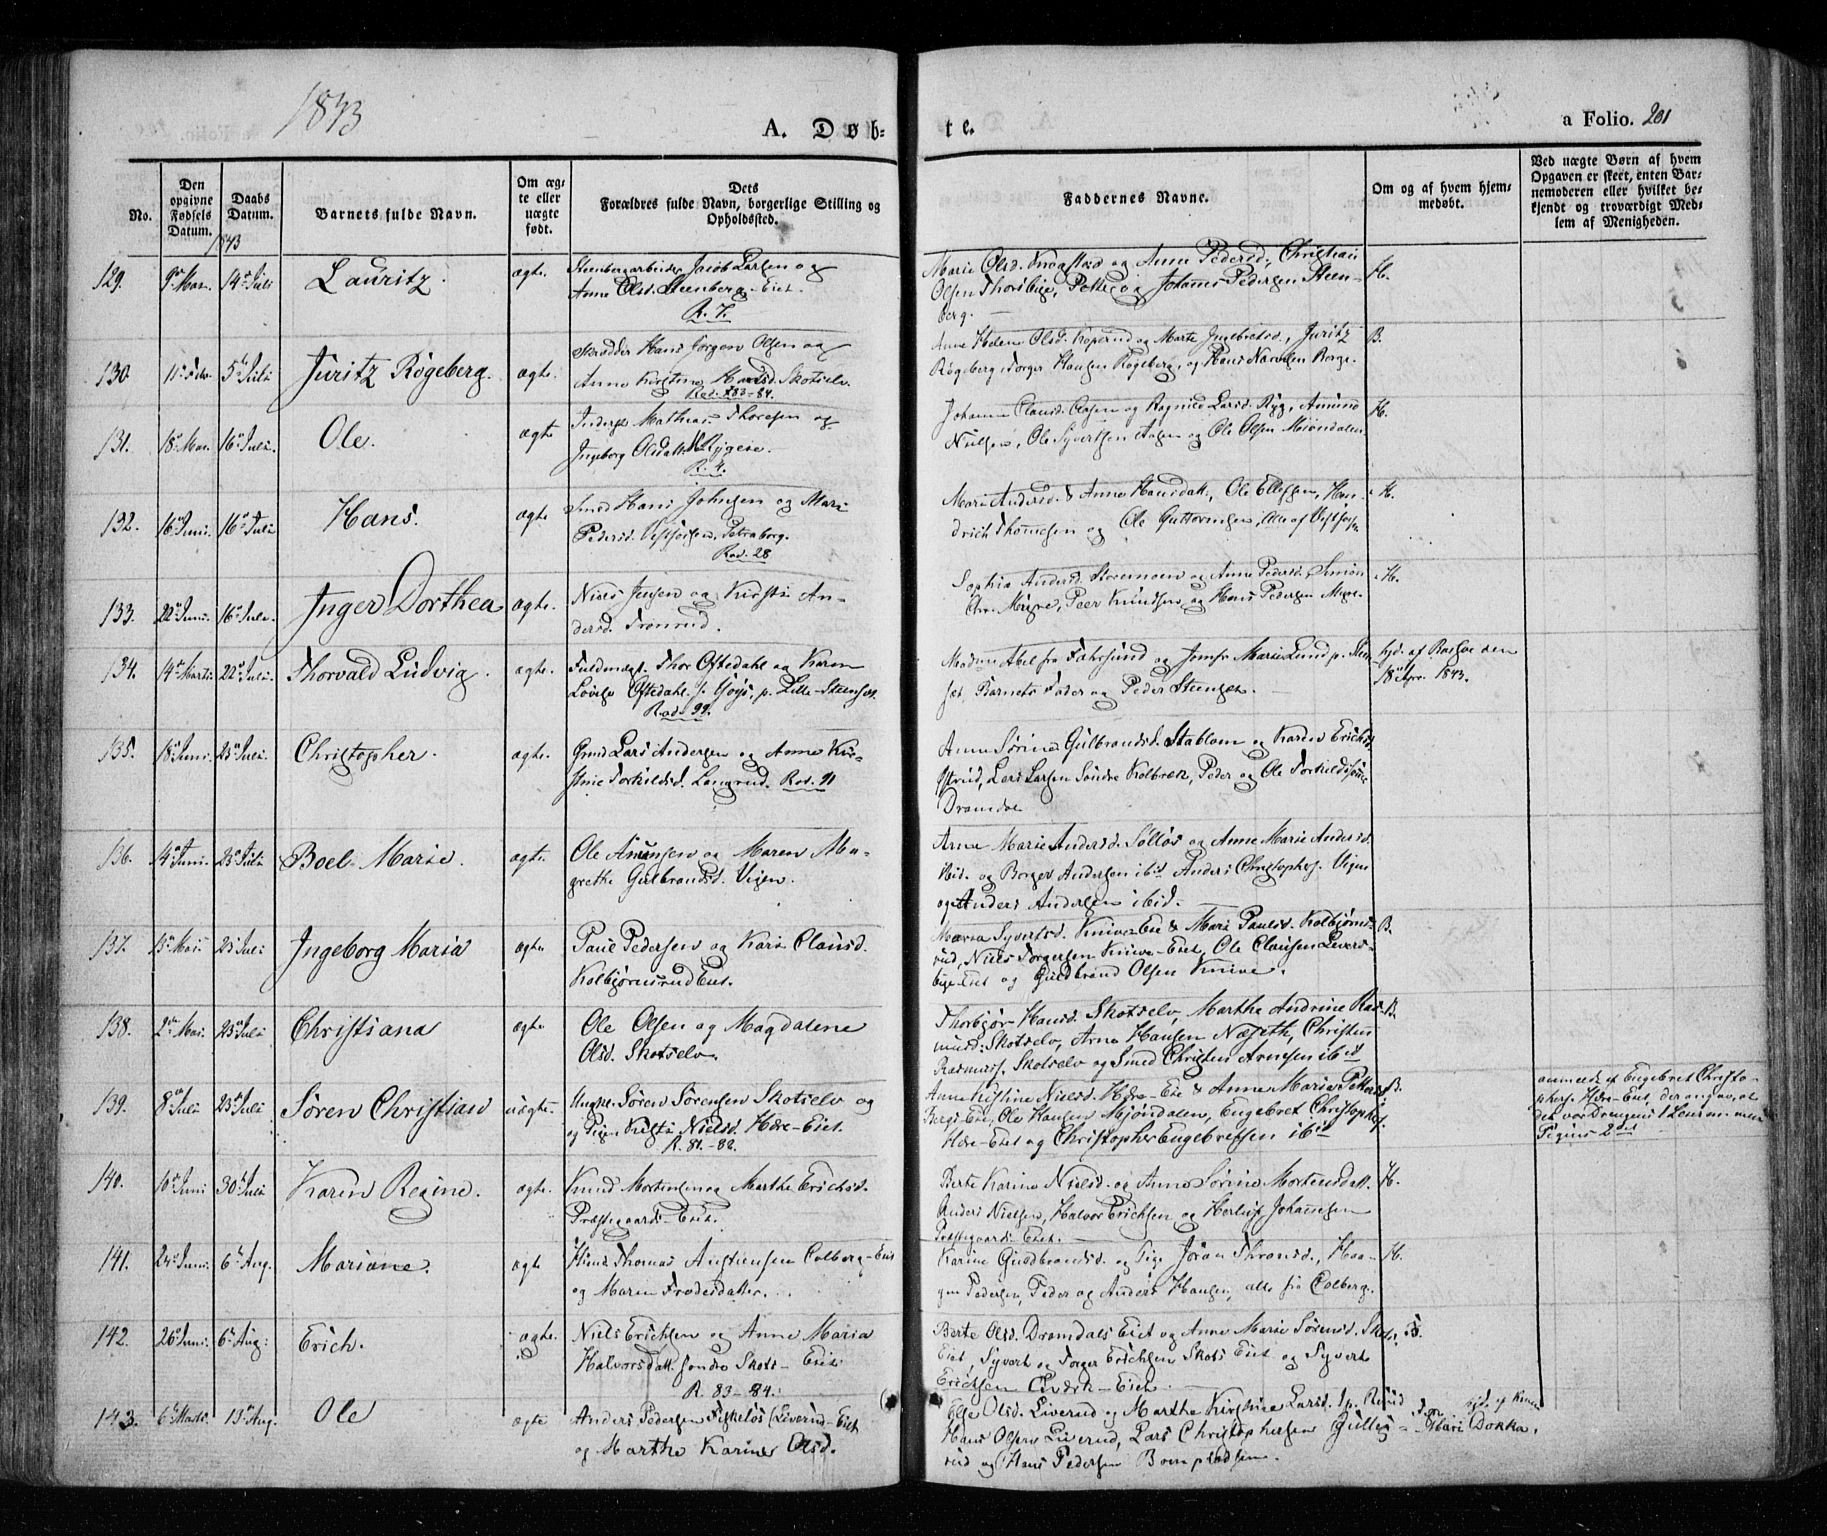 1843
A. Døb-
te.
a Folio. 201
No.
Den opgivne Fødsels Datum.
Daabs Datum.
Barnets fulde Navn.
Om ægte eller uægte født.
Dets Forældres fulde Navn, borgerlige Stilling og Opholdssted.
Faddernes Navne.
Om og af hvem hjemmedøbt.
Ved uægte Børn af hvem Opgaven er skeet, enten Barnemoderen eller hvilket bekjendt og troværdigt Medlem af Menigheden.
1843
129. 14de Juli Lauritz. ægte. Jacob Larsen og
Anne Olsd. Steenberg-Eiet.
R. 7.
Marie Olsd. og Anne Pedersd., Christian
Olsen Thorsbye, og Johannes Pedersen Steen-
berg.
H.
130. 5te Juli Juritz Røgeberg. ægte. Skrædder Hans Jørgen Olsen og
Anne Kirstine Skotselv.
Rod. 83-84.
Anne Helene Olsd. Koperud og Marte Ingebretsd., Juritz
Røgeberg, Torger Hansen Røgeberg, og Hans Borge.
B.
131. 18de 16de Juli Ole. ægte Inderst Mathias Thoresen og
Ingeborg Olsdatter
R. 4.
Johanne Clausd. og Ragnild Larsd. Ryg, Amund
Nielsen, Ole Syvertsen og Ole Olsen Mjøndalen
H.
132. 16de Juni. 16de Juli Hans. ægte Smed Hans Johnsen og Mari
Pedersd. Vestfossen, Petraborg.
Rod. 28
Mari Andersd. & Anne Hansdatt., Ole Ellefsen, Hen-
drich Thomesen og Ole Guttormsen, alle af Vestfossen
H.
133. 22de Juni. 16de Juli. Inger Dorthea ægte. Niels Jensen og Kirsti An-
dersd. Tronrud.
Sophia Andersd. Storemoen og Anne Pedersd., Simon
Chr. Peer Knudsen og Hans Pedersen
H.
134. 14de Marts 22de Juli. Thorvald Ludvig. ægte. Fuldmægt. Thor Oftedahl og Karen
Lovise Oftedahl p. Lille-Steenset.
Rod. 99.
Madm. Abel fra Farsund og Jomfr. Marie Lund p. Steen-
set, Barnets Fader og Peder Steenset.
hjd. af den
18de Apr. 1843.
135. 18de Juni 23de Juli. Christopher. ægte. Lars Andersen og Anne Kir-
stine Torkildsd. Langrud. Rod. 91
Anne Sørine Gulbrandsd. Stablom og Karen Erichsd.
Lars Larsen Søndre Kolbræk, Peder og Ole Torkildssønne
Dramdal
136. 14de Juni. 23de Juli Boel Marie. ægte. Ole Amunsen og Maren Ma-
grethe Gulbrandsd. Vigen.
Anne Marie Andersd. Solløs og Anne Marie Andersd.
ibid. og Borger Andersen ibid. Anders Christophers. Vigen
og Anders Andersen ibid.
137. 15de Mai 23de Juli Ingeborg Maria ægte Paul Pedersen og Kari Clausd.
Kolbjørnsrud Eiet.
Maria Syvertsd. Knive-Eie & Mari Paulsd. Kolbjørns-
rud, Niels Torgersen Knive-Eiet, Ole Clausen Livers-
bige-Eiet og Guldbrand Olsen Knive.
B.
138. 2den Mai. 23de Juli Christiana ægte Ole Olsen og Magdalene
Olsd. Skotselv.
Thorbjør Hansd. Skotselv, Martha Andrine Ras-
musd. Skotselv, Arne Hansen Næseth, Christen
Rasmuss. Skotselv og Smed Christen Arnesen ibid
B.
139. 8de Juli 23de Juli Søren Christian uægte. Ungkr. Søren Sørensen Skotselv og
og Pigen Kirsti Nielsd. Hære-Eiet.
R. 81-82.
Anne Kistine Nielsd. Hære-Eie & Anne Maria Petters-
bergs-Eie, Ole Hansen Mjøndalen, Engebret Christophers.
Hære-Eiet og Christopher Engebretsen ibid
B.
anmeldt af Engebret Christo-
phers. Hære-Eiet, der angav, at
det var Drengens 1 Leierm. men
Pigens 2det
140. 10de Juni 30te Juli Karen Regine. ægte. Knud Mortensen og Marthe Erichsd.
Præstegaards-Eiet.
Berte Karine Nielsd. og Anne Sørine Mortensdatt.
Anders Nielsen, Halvor Erichsen og Herluf Johannesen
Præstegaards-Eiet.
H.
141. 24de Juni. 6te Aug. Mariane. ægte Thomas Anstensen Colberg-Eiet
og Maren Frodesdatter.
Karine Guldbrandsd. og Pige Jøran Thronsd., Haa-
gen Pedersen, Peder og Anders Hansen, alle fra Colberg.
H.
142. 26de Juni. 6te Aug: Erich. ægte. Niels Erichsen og Anne Maria
Halvorsdatt. søndre Skots-Eiet.
R. 83-84.
Berte Olsd. Dramdals Eiet og Anne Marie Sørensd. Skots-
Eiet, Syvert og Torger Erichsen Skots Eiet og Syvert
Erichsen Qværk-Eiet.
B.
143. 6te Marts. 13de Aug. Ole ægte Anders Pedersen Fiskeløs (Liverud-Eiet
og Marthe Karine Olsd.
Else Olsd. Liverud og Marthe Kirstine Larsd.
Hans Olsen Liverud, Lars Christophersen Gulles-
rud og Hans Pedersen
hjd. af Konen
Mari Dokka.